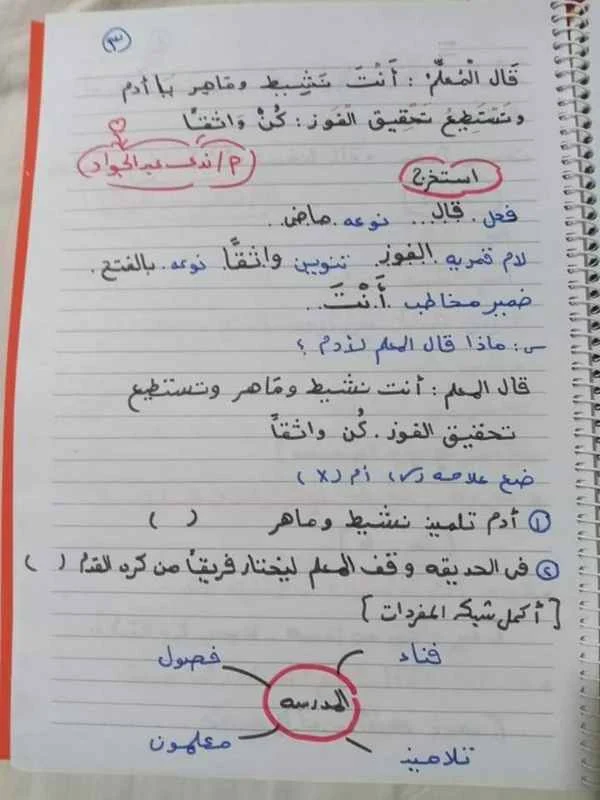 ٣
قَال الْمُعلِّمُ : أَنْتَ نَشِيط وَمَاهِر يَا أدم
وتَسْتَطِيعُ تَحْقِيق الفَوز : كُنْ وَاثقاً
م/ندى عبد الجواد
استخرج
فعل . قال ... نوعه . ماضى .
لام قمريه . الفوز . تنوين واثقاً نوعه . بالفتح .
ضمير مخاطب . أَنْتَ . .
س : ماذا قال المعلم لأدم ؟
قال المعلم : أنت نشيط ومَاهر وتستطيع
تحقيق الفوز . كُن واثقاً
ضع علامه (✓) أم (X)
① أدم تلميذ نشيط وماهر ( )
② فى الحديقه وقف المعلم ليختار فريقاً من كره القدم ( )
[ أكمل شبكه المفردات ]
فناء فصول
المدرسه
تلاميذ معلمون